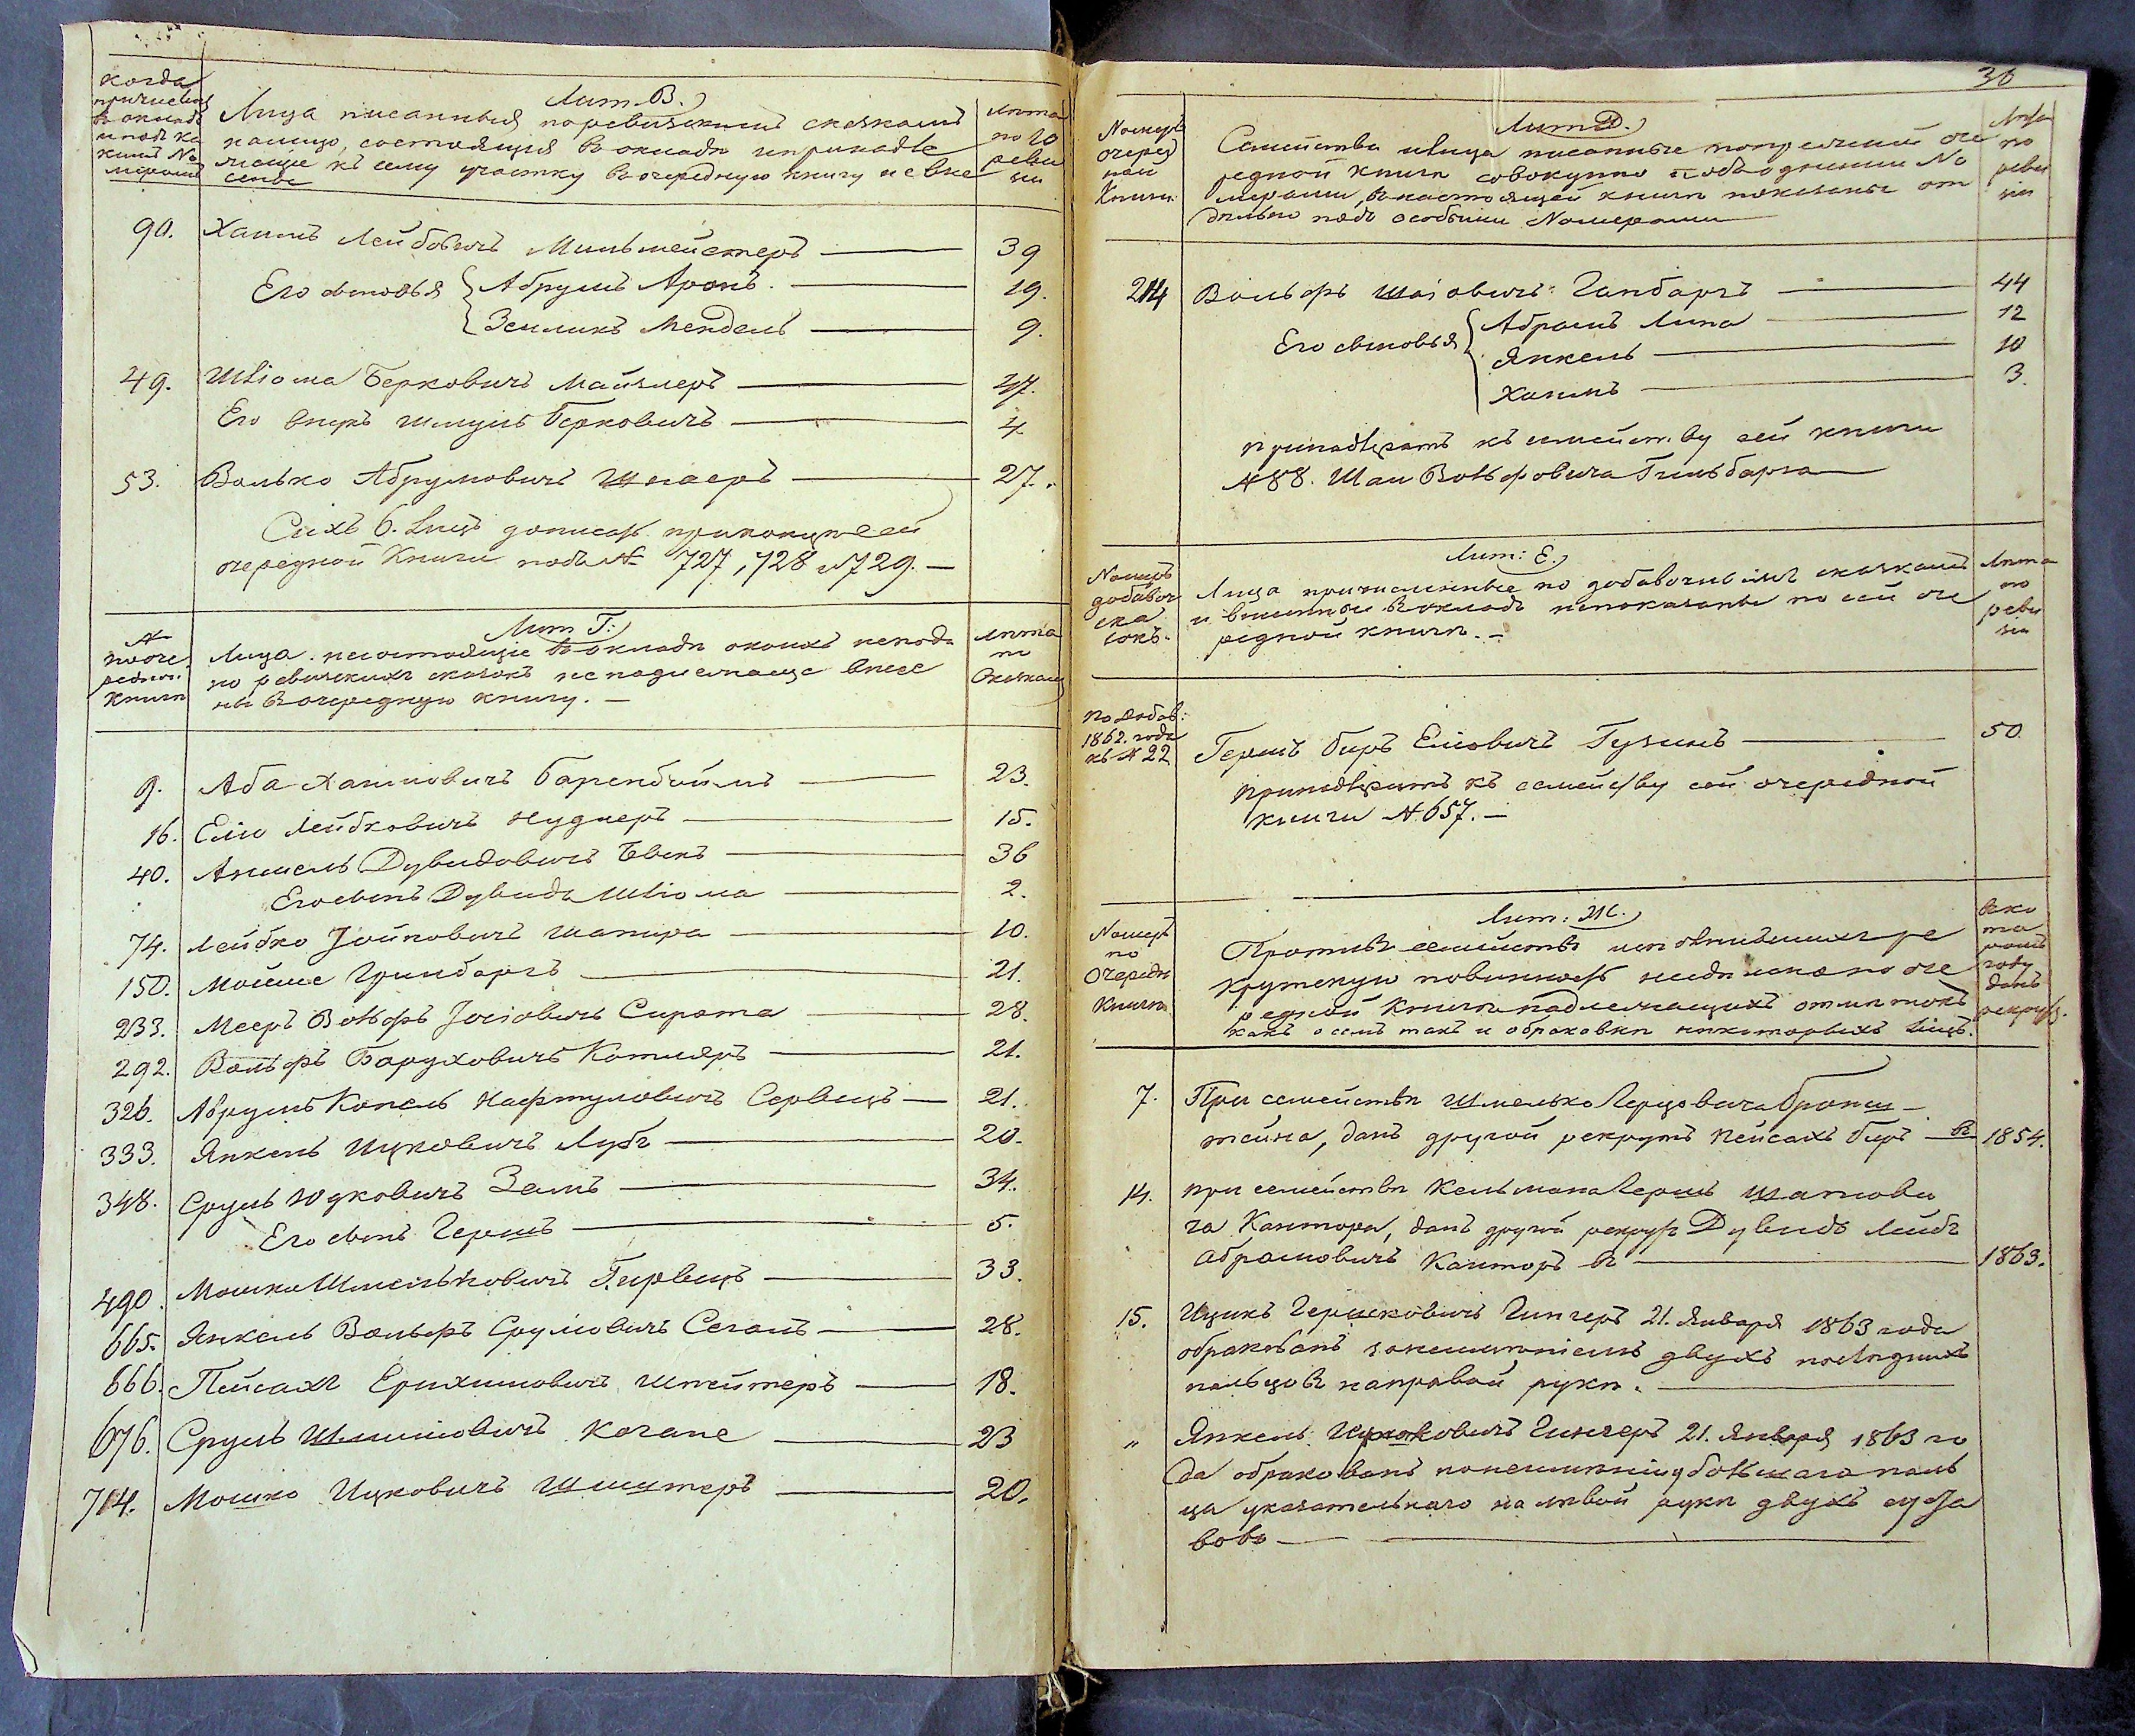 Лит. В.
когда
причислен
въ окладъ
и подъ ка
кимъ Но
меромъ
Лица писанныя по ревизскимъ сказкамъ
налицо, состоящія въ окладѣ и принадле
жащіе къ сему участку въ очередную книгу не вне
сены
лѣта
по 10
реви
зіи
90. Хаимъ Лейбовичъ Мильмейстеръ 39
Его сыновья Абрумъ Аронъ. 19.
Земликъ Мендель 9.
49. Шліома Берковичъ Майзлеръ 47.
Его внукъ Шмуль Берковичъ 4.
53. Волько Абрумовичъ Шнаеръ 27.
Сихъ 6. лицъ дописать при концѣ сей
очередной Книги подъ № 727, 728 и 729. —
Лит Г:
№
по оче
редной
Книги
Лица не состоящіе въ окладѣ о коихъ непода
но ревизскихъ сказокъ не надлежаще внесе
ны въ очередную книгу. —
лѣта
по
Сказкамъ
9. Аба Хаимовичъ Баренбоймъ 23.
16. Еліо Лейбковичъ Нудлеръ 15.
40. Аншель Дувидовичъ 36
Его сынъ Дувидъ Шліома 2.
74. Лейбко Іойновичъ Шапира 10.
150. Мойше Гринбаргъ 21.
233. Мееръ Вольфъ Іосіовичъ Сирота 28.
292. Вольфъ Баруховичъ Котляръ 21.
326. Абрумъ Копель Нафтуловичъ Сервецъ 21.
333. Янкель Ицковичъ Лубъ 20.
348. Сруль Юдковичъ Замъ 34.
Его сынъ Гершъ 5.
490. Мошко Шмельковичъ Гирвецъ 33.
665. Янкель Вольфъ Срулiовичъ Сегалъ 28.
666. Пейсахъ Ерухимовичъ Штейтеръ 18.
676. Сруль Шліомовичъ Кагане 23
714. Мошко Ицковичъ Шмутеръ 20.
36
Лит Д.
Номеръ
очеред
ной
Книги
Семейства и лица писанные по прежней оче
редной книги совокупно подъ одними Но
мерами, въ настоящей книги показаны от
дѣльно подъ особыми Номерами
Лѣта
по
реви
зіи
214 Вольфъ Шаіовичъ Гинбаргъ 44
Его сыновья Абрамъ Липа 12
Янкель 10
Хаимъ 3.
принадлежатъ къ семейству сей книги
№ 88. Шаи Вольфовича Гильбарга
Лит: Е.
Номеръ
добавоч
ска
зокъ.
Лица причисленные по добавочнымъ сказкамъ
и въ окладъ непоказаны по сей оче
редной книги. —
Лѣта
по
реви
зіи
По добав:
1862. года
къ № 22
Гершъ Беръ Еліовичъ Гузикъ 50.
принадлежитъ къ семейству сей очередной
книги № 657. —
Лит: Ж.
Номеръ
по
очередн
Книги
Противъ семействъ исполнившихъ ре
крутскую повинность по оче
редной книги надлежащихъ отмѣтокъ
какъ о семъ такъ и обраковки нѣкоторыхъ лицъ.
въ ко
то
ромъ
году
данъ
рекрутъ.
7. При семействѣ Шмелько Герцовича Бронш-
тейна, данъ другой рекрутъ Пейсахъ Беръ въ 1854.
14. При семействѣ Кельмана Гершъ Шаповича
Кантора, данъ другой рекрутъ Дувидъ Лейбъ
Абрамовичъ Канторъ въ 1863.
15. Ицикъ Гершковичъ Гингеръ 21. Января 1863 года
обракованъ за неимѣніемъ двухъ послѣднихъ
пальцовъ на правой руки.
" Янкель Гингеръ 21. Января 1863 го
да обракованъ по неимѣнію большаго паль
ца указательнаго на лѣвой руки двухъ суста
вовъ